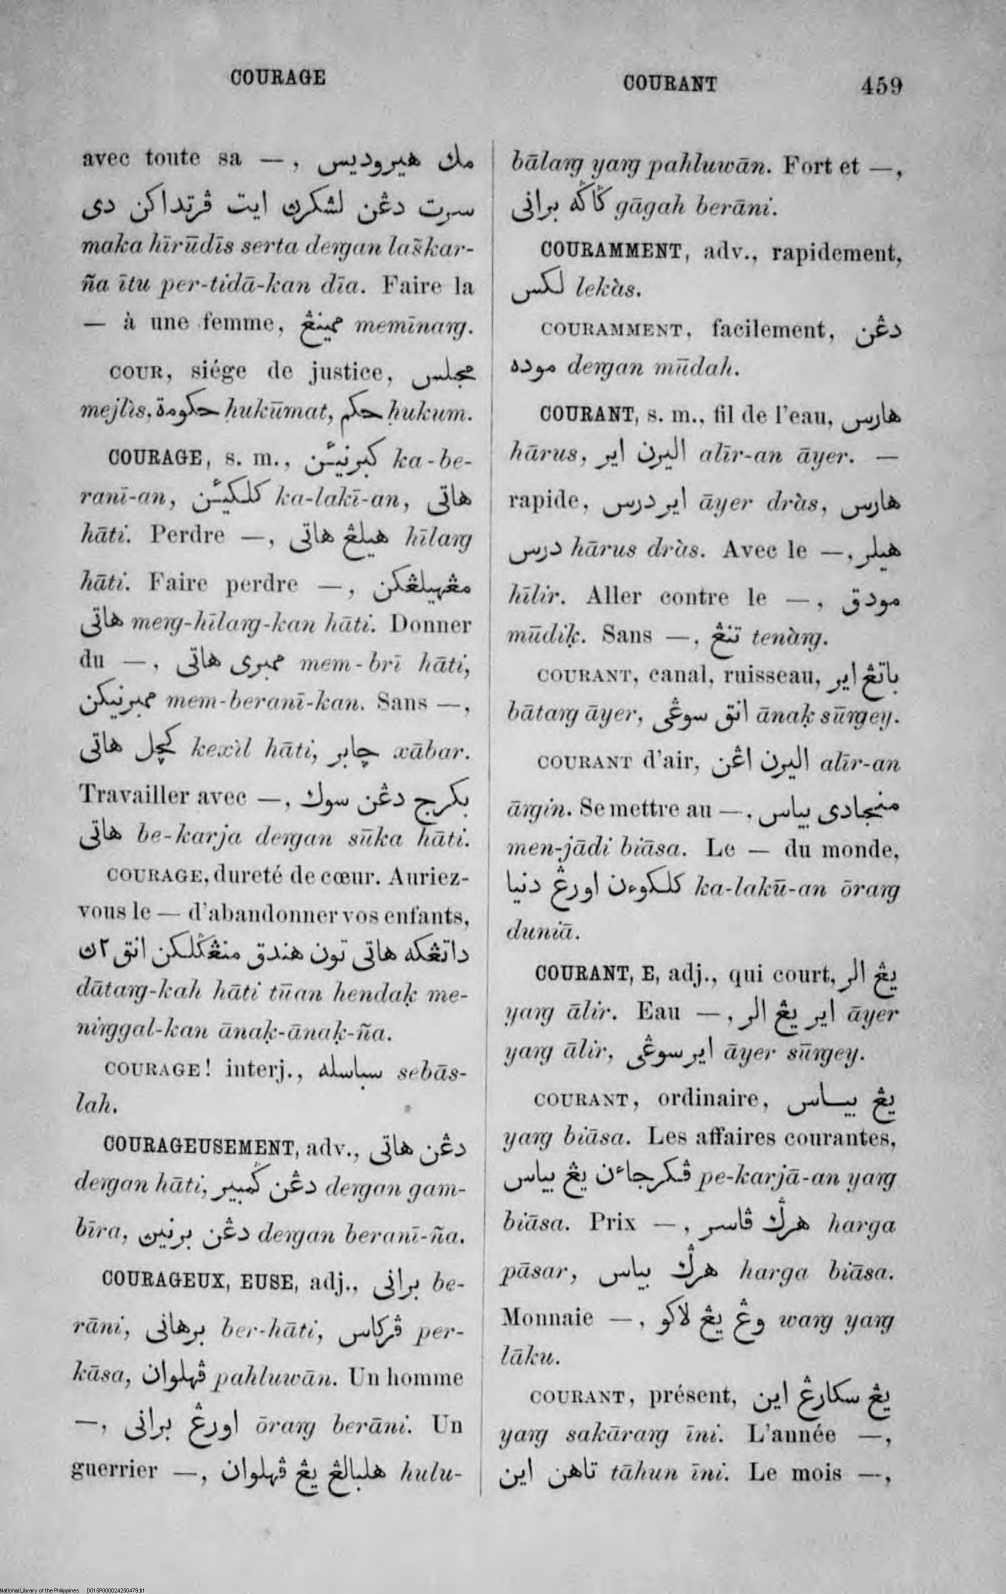 COURAGE
COURANT
459
avec toute sa —, مك هيروديس
سرت دڠن لشكرڽ ايت ڤرتداكن دي
maka hīrūdīs serta deŋan laškar-
ña ītu per-tidā-kan dīa. Faire la
— à une femme, ممينڠ memīnaŋ.
COUR, siége de justice, مجلس
mejlìs, حكومة ḥukūmat, حكم ḥukum.
COURAGE, s. m., كبرنيئن ka-be-
ranī-an, كلكيئن ka-lakī-an, هاتي
hāti. Perdre —, هيلڠ هاتي hīlaŋ
hāti. Faire perdre —, مڠهيلڠكن
هاتي meŋ-hīlaŋ-kan hāti. Donner
du —, ممبري هاتي mem-brī hāti,
ممبرنيكن mem-beranī-kan. Sans —,
كچل هاتي kexìl hāti, چابر xābar.
Travailler avec —, بكرج دڠن سوك
هاتي be-karja deŋan sūka hāti.
COURAGE, dureté de cœur. Auriez-
vous le — d'abandonner vos enfants,
داتڠكه هاتي تون هندق منڠݢلكن انق ٢ڽ
dātaŋ-kah hāti tūan hendaḳ me-
niŋgal-kan ānaḳ-ānaḳ-ña.
COURAGE! interj., سباسله sebās-
lah.
COURAGEUSEMENT, adv., دڠن هاتي
deŋan hāti, دڠن ݢمبير deŋan gam-
bīra, دڠن برنيڽ deŋan beranī-ña.
COURAGEUX, EUSE, adj., براني be-
rāni, برهاتي ber-hāti, ڤركاس per-
kāsa, ڤهلوان pahluwān. Un homme
—, اورڠ براني ōraŋ berāni. Un
guerrier —, هلبالڠ يڠ ڤهلوان hulu-
bālaŋ yaŋ pahluwān. Fort et —,
ݢاݢه براني gāgah berāni.
COURAMMENT, adv., rapidement,
لكس lekàs.
COURAMMENT, facilement, دڠن
موده deŋan mūdah.
COURANT, s. m., fil de l'eau, هارس
hārus, اليرن اير alīr-an āyer. —
rapide, اير درس āyer dràs, هارس
درس hārus dràs. Avec le —, هيلر
hīlir. Aller contre le —, مودق
mūdiḳ. Sans —, تنڠ tenàŋ.
COURANT, canal, ruisseau, باتڠ اير
bātaŋ āyer, انق سوڠي ānaḳ sūŋey.
COURANT d'air, اليرن اڠن alīr-an
āŋin. Se mettre au —, منجادي بياس
men-jādi biāsa. Le — du monde,
كلكوءن اورڠ دنيا ka-lakū-an ōraŋ
duniā.
COURANT, E, adj., qui court, يڠ الر
yaŋ ālir. Eau —, اير يڠ الر āyer
yaŋ ālir, اير سوڠي āyer sūŋey.
COURANT, ordinaire, يڠ بياس
yaŋ biāsa. Les affaires courantes,
ڤكرجاءن يڠ بياس pe-karjā-an yaŋ
biāsa. Prix —, هرݢ ڤاسر harga
pāsar, هرݢ بياس harga biāsa.
Monnaie —, وڠ يڠ لاكو waŋ yaŋ
lāku.
COURANT, présent, يڠ سكارڠ اين
yaŋ sakāraŋ īni. L'année —,
تاهن اين tāhun īni. Le mois —,
National Library of the Philippines